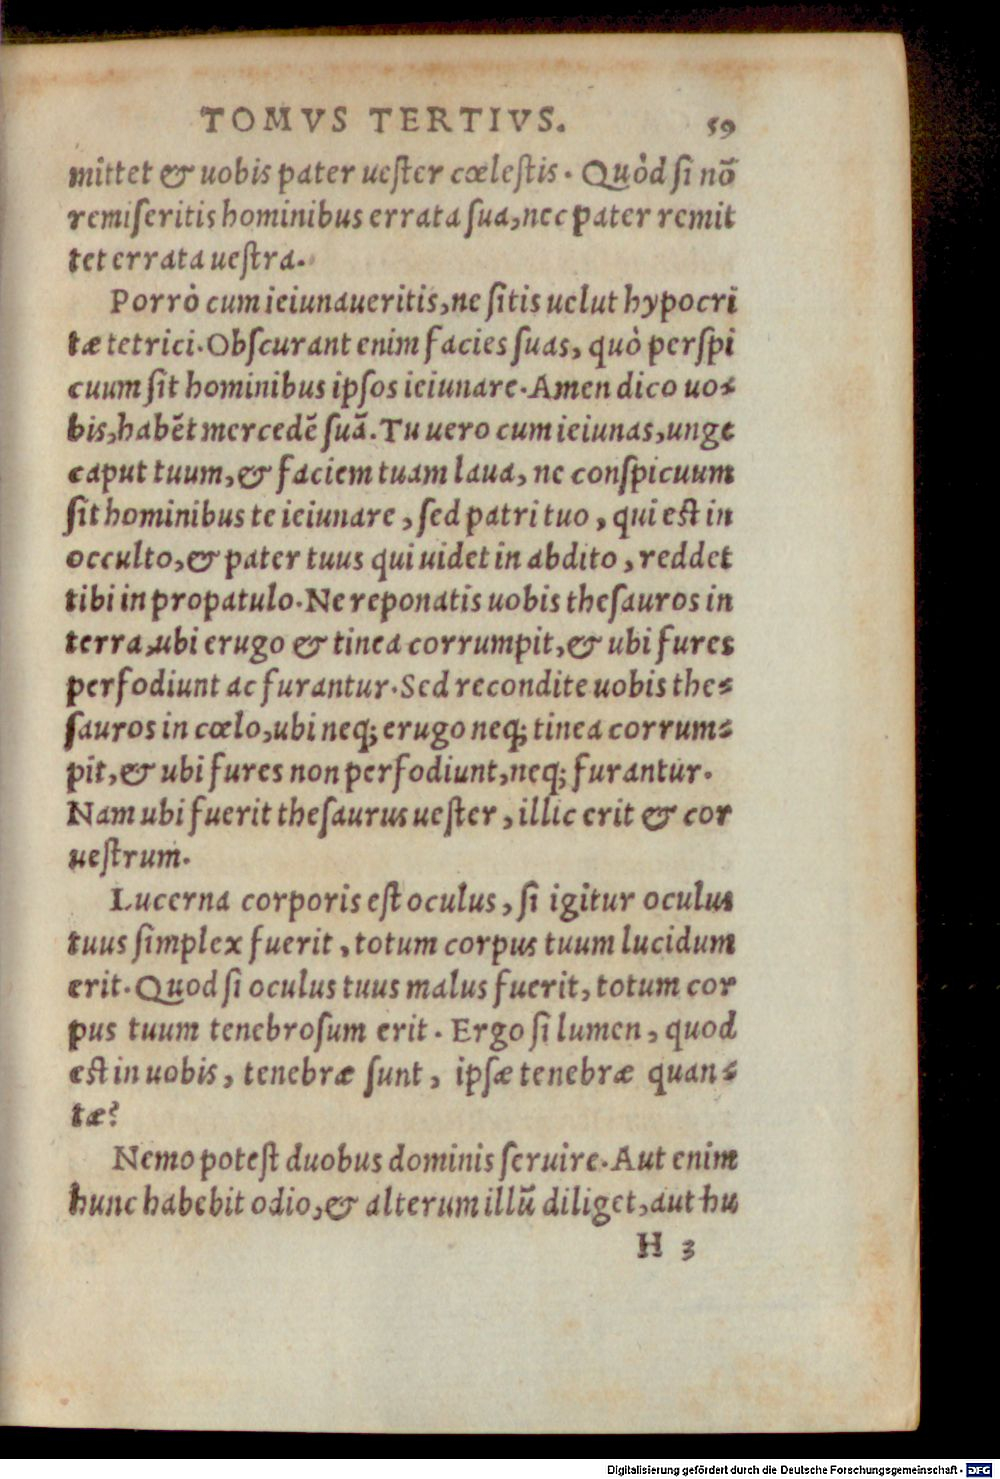 TOMVS TERTIVS. 59
mittet & uobis pater uester cœlestis. Quòd si nõ
remiseritis hominibus errata sua, nec pater remit
tet errata uestra.
Porrò cum ieiunaueritis, ne sitis uelut hypocri
tæ tetrici. Obscurant enim facies suas, quò perspi
cuum sit hominibus ipsos ieiunare. Amen dico uo-
bis, habẽt mercedẽ suã. Tu uero cum ieiunas, unge
caput tuum, & faciem tuam laua, ne conspicuum
sit hominibus te ieiunare, sed patri tuo, qui est in
occulto, & pater tuus qui uidet in abdito, reddet
tibi in propatulo. Ne reponatis uobis thesauros in
terra, ubi erugo & tinea corrumpit, & ubi fures
perfodiunt ac furantur. Sed recondite uobis the-
sauros in cœlo, ubi neq; erugo neq; tinea corrum-
pit, & ubi fures non perfodiunt, neq; furantur.
Nam ubi fuerit thesaurus uester, illic erit & cor
uestrum.
Lucerna corporis est oculus, si igitur oculus
tuus simplex fuerit, totum corpus tuum lucidum
erit. Quod si oculus tuus malus fuerit, totum cor
pus tuum tenebrosum erit. Ergo si lumen, quod
est in uobis, tenebræ sunt, ipsæ tenebræ quan-
tæ?
Nemo potest duobus dominis seruire. Aut enim
hunc habebit odio, & alterum illũ diliget, aut hu
H 3
Digitalisierung gefördert durch die Deutsche Forschungsgemeinschaft - DFG